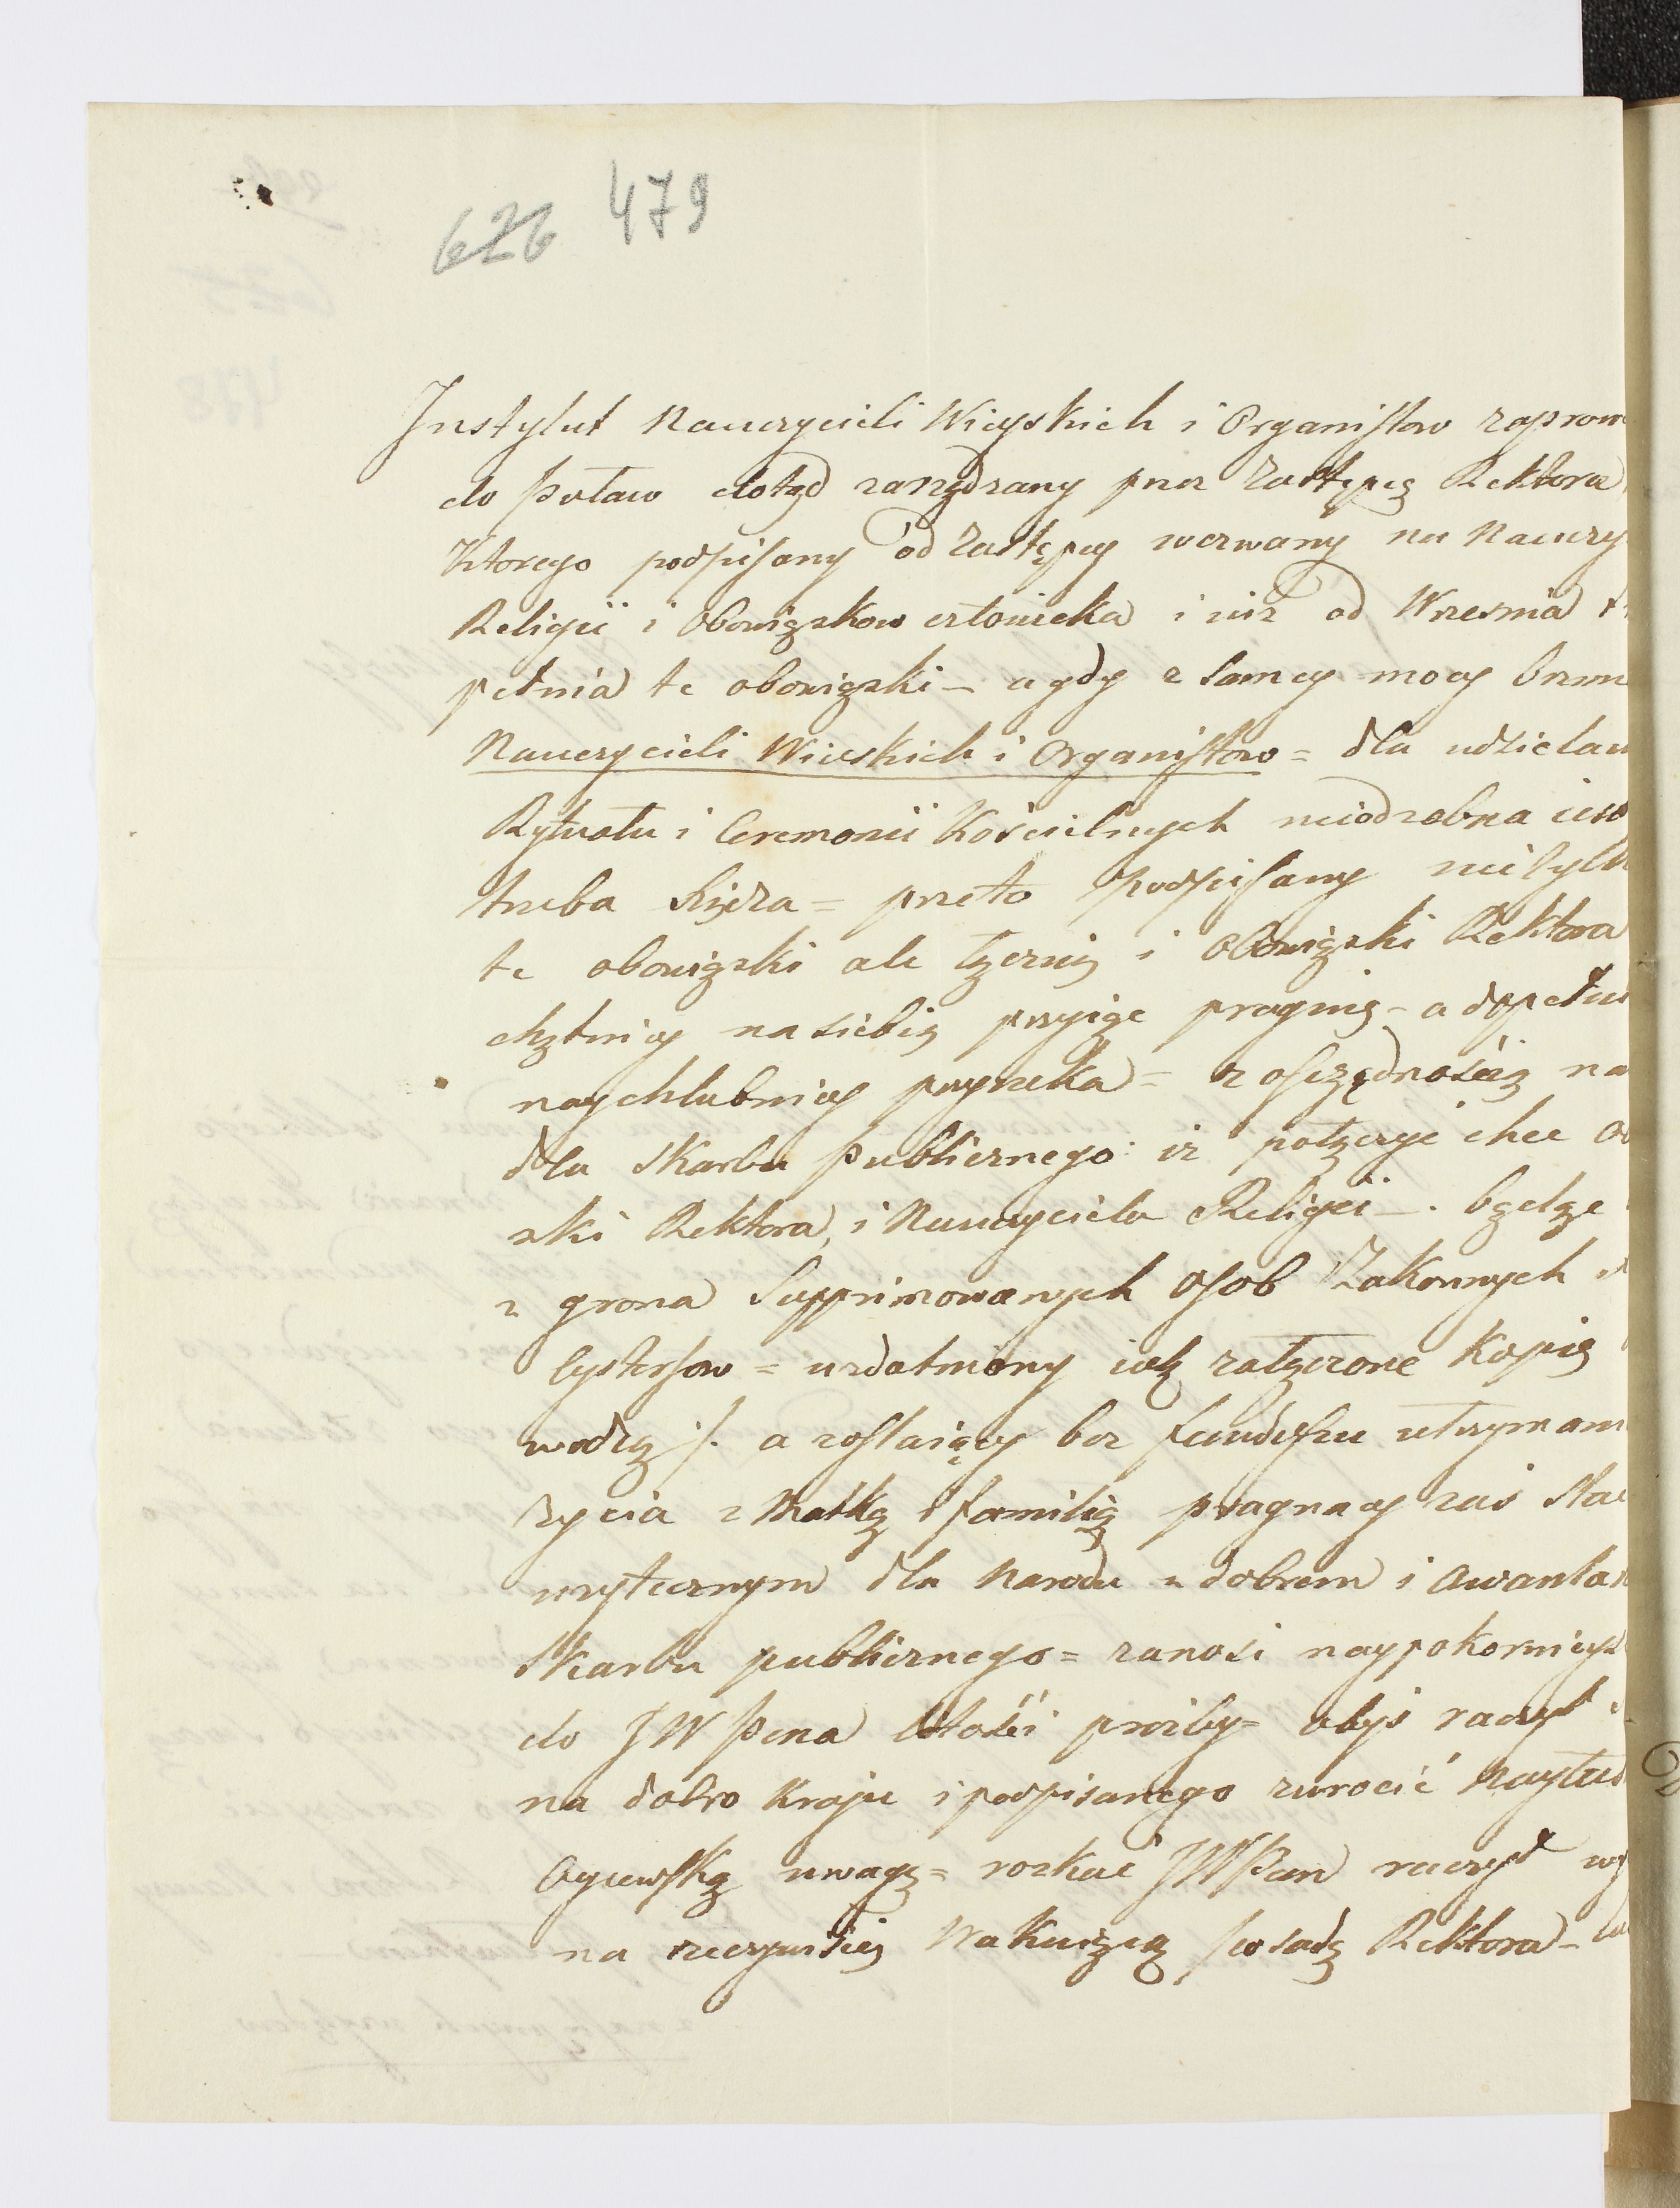 626 479
Instytut Nauczycieli Wieyskich i Organistow zaprow
do Puław dotąd zarządzany przez Zastępcę Rektora
Ktorego podpisany od Zastępcy wezwany na Nauczy
Religii i Obowiązkow człowieka i iuż od Wrzesnia
pełnia te obowiązki – a gdy z samey mocy Brzm
Nauczycieli Wieskich i Organistow = dla udzielan
Rytuału i Ceremonii Kościelnych nieodzobna iest
trzeba Xiędza = przeto Podpisany nie tylk
te obowiązki ale łącznię i Obowiązki Rektora
chętniey na siebię przyiąc pragnię – a dopełni
naychlubniey przyrzeka = z osczędnością na
dla Skarbu Publicznego: iż połączyć chce Ob
zki Rektora, i Nauczyciela Religii – . będąc
z grona Supprimowanych Osob Zakonnych
Cystersow = uzdatniony iak załączone Kopię
wodzą /. a zostaiący bez funduszu utrzymani
życia z Matką i familią pragnący zaś stać
użytecznym dla Narodu z dobrem i Awantaż
Skarbu publicznego = zanosi naypokornieysz
do JW Pana Litości prozby = abyś raczył
na dobro Kraju i podpisanego zwrocić Naytus
Oycowską uwagę = rozkać JW Pan raczył wy
na rzeczywistę Wakuiącą posadę Rektora –